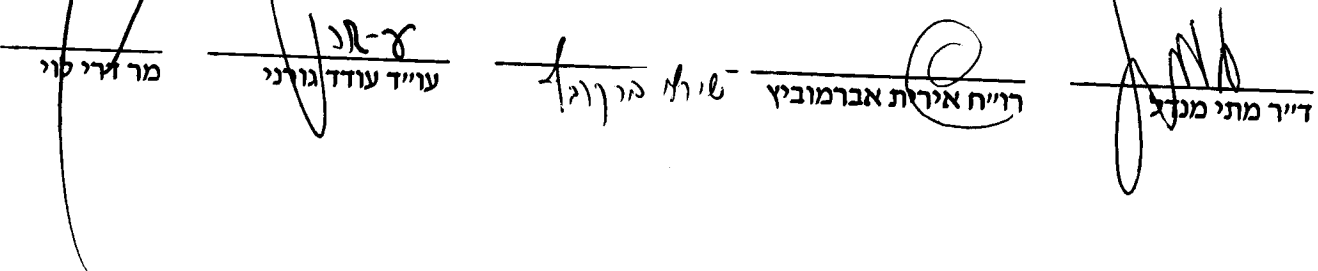 ד״ר מתי מנדל רו״ח אירית אברמוביץ עו״ד עודד גורני מר דרי לוי